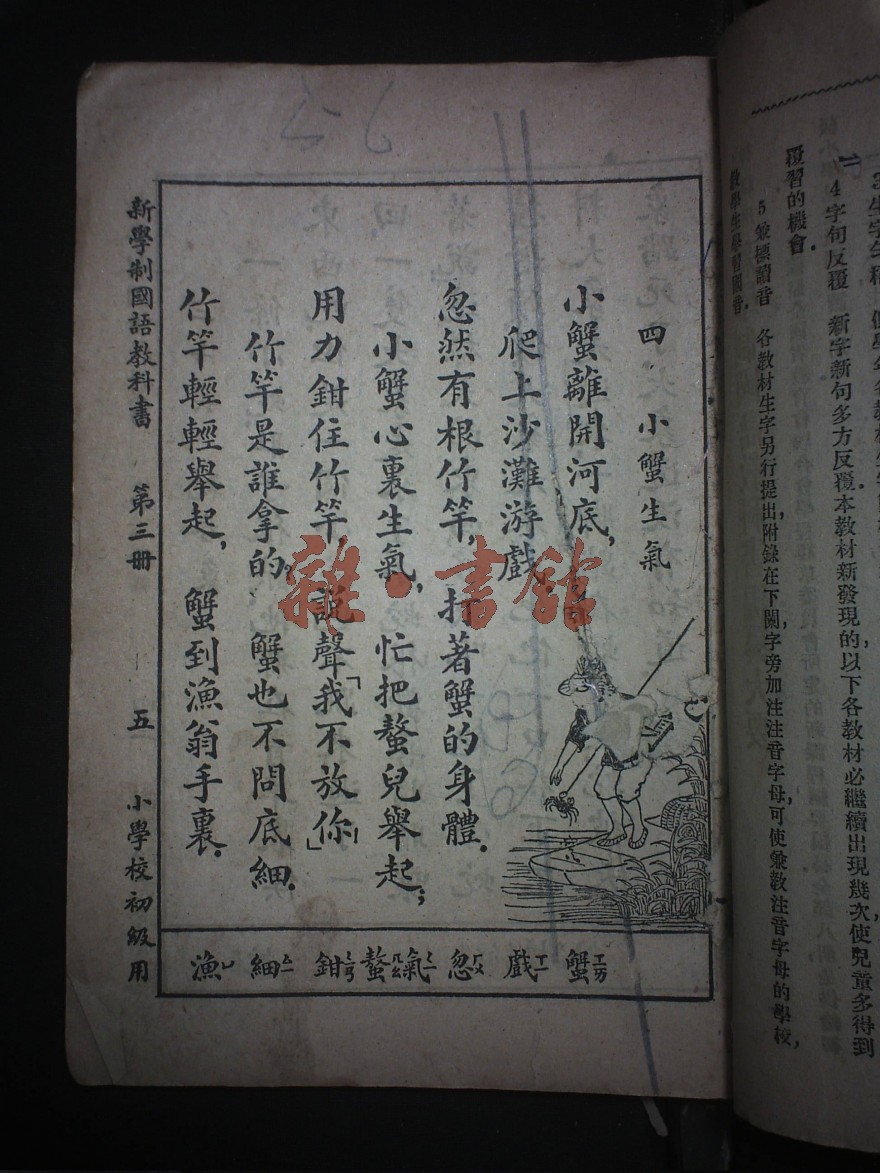 二
3生字生
4字句反覆　新字新句多方反覆本教材新發現的以下各教材必繼續出現幾次使兒童多得到
覆習的機會．
5兼標讀音　各教材生字另行提出，附錄在下闌字旁加注注音字母，可使兼教注音字母的學校，
教學生學習國音．
四　小蟹生氣
小蟹離開河底，
爬上沙灘游戲．
忽然有根竹竿，打著蟹的身體．
小蟹心裏生氣，忙把螯兒舉起；
用力鉗住竹竿，說聲「我不放你」
竹竿是誰拿的，蟹也不問底細．
竹竿輕輕舉起，蟹到漁翁手裏．
蟹ㄒㄧㄞ　戲ㄒㄧ　忽ㄏㄨ　氣ㄑㄧ　螯ㄠ　鉗ㄑㄧㄢ　細ㄙㄧ　漁ㄩ
新學制國語教科書　第三冊　五　小學校初級用
雜·書館